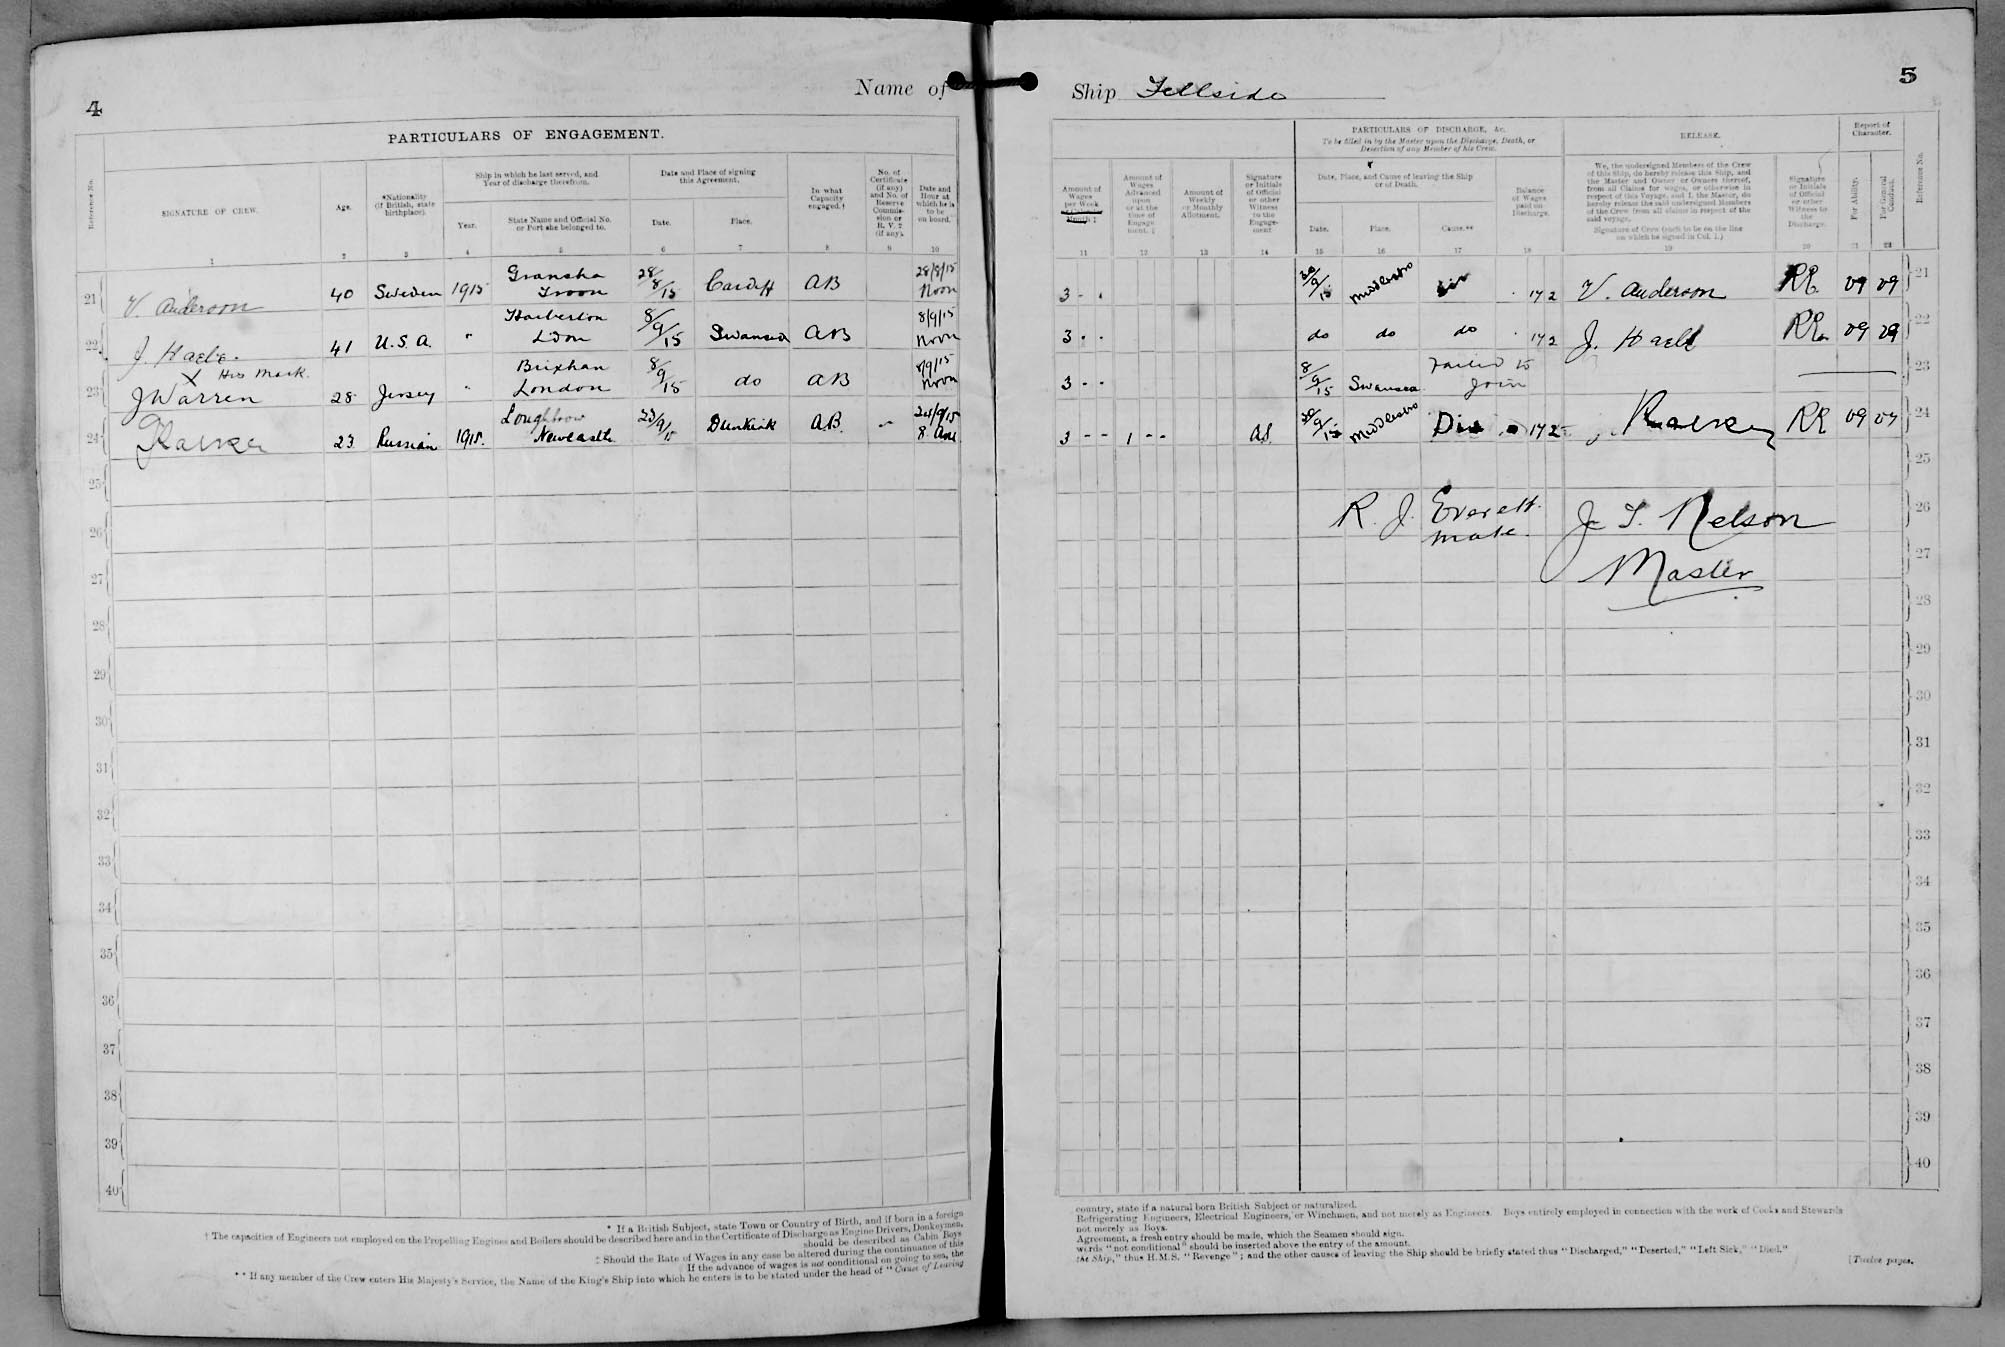 4
Name of
Ship Fellside
5
PARTICULARS OF ENGAGEMENT.
Reference No.
SIGNATURE OF CREW.
Age.
*Nationality
(if British, state
birthplace).
Ship in which he last served, and
Year of discharge therefrom.
Year.
State Name and Official No.
or Port she belonged to.
Date and Place of signing
this Agreement.
Date.
Place.
In what
Capacity
engaged.†
No. of
Certificate
(if any)
and No. of
Reserve
Commis-
sion or
R. V. 2
(if any).
Date and
Hour at
which he is
to be
on board.
1 2 3 4 5 6 7 8 9 10
21 V. Anderson 40 Sweden 1915 Gransha Troon 28/8/15 Cardiff AB 28/8/15 Noon
22 J. 41 U.S.A. " L'don 8/9/15 Swansea AB 8/9/15 Noon
X His Mark.
23 J Warren 28 Jersey " Brixham London 8/9/15 do AB 8/9/15 Noon
24 23 Russian 1915. Newcastle 23/9/15 Dunkirk A.B. 24/9/15
25
26
27
28
29
30
31
32
33
34
35
36
37
38
39
40
* If a British Subject, state Town or Country of Birth, and if born in a foreign
† The capacities of Engineers not employed on the Propelling Engines and Boilers should be described here and in the Certificate of Discharge as Engine Drivers, Donkeymen,
should be described as Cabin Boys
‡ Should the Rate of Wages in any case be altered during the continuance of this
If the advance of wages is not conditional on going to sea, the
** If any member of the Crew enters His Majesty's Service, the Name of the King's Ship into which he enters is to be stated under the head of "Cause of Leaving
Amount of
Wages
per Week
or Calendar
Month ‡
Amount of
Wages
Advanced
upon
or at the
time of
Engage
ment. ‡
Amount of
Weekly
or Monthly
Allotment.
Signature
or Initials
of Official
or other
Witness
to the
Engage-
ment
PARTICULARS OF DISCHARGE, &c.
To be filled in by the Master upon the Discharge, Death, or
Desertion of any Member of his Crew.
Date, Place, and Cause of leaving the Ship
or of Death.
Date.
Place.
Cause.**
Balance
of Wages
paid on
Discharge.
RELEASE.
We, the undersigned Members of the Crew
of this Ship, do hereby release this Ship, and
the Master and Owner or Owners thereof,
from all Claims for wages, or otherwise in
respect of this Voyage, and I, the Master, do
hereby release the said undersigned Members
of the Crew from all claims in respect of the
said voyage.
Signature of Crew (each to be on the line
on which he signed in Col. 1.)
Signature
or Initials
of Official
or other
Witness to
the
Discharge.
Report of
Character.
For Ability.
For General
Conduct.
Reference No.
11 12 13 14 15 16 17 18 19 20 21 22
3 - . 30/9/15 Middlesbro Dis . 17 2 V. Anderson RE. 21
3 - - do do do . 17 2 J. RE. 22
3 - - 8/9/15 Swansea Failed to join 23
3 - - 1 - - 30/9/15 Middlesbro Dis 17 2 RE 24
25
R. J. Everett J. T. Nelson 26
Mate. Master 27
28
29
30
31
32
33
34
35
36
37
38
39
40
country, state if a natural born British Subject or naturalized.
Refrigerating Engineers, Electrical Engineers, or Winchmen, and not merely as Engineers. Boys entirely employed in connection with the work of Cooks and Stewards
not merely as Boys.
Agreement, a fresh entry should be made, which the Seamen should sign.
words "not conditional" should be inserted above the entry of the amount.
the Ship," thus H.M.S. "Revenge"; and the other causes of leaving the Ship should be briefly stated thus "Discharged," "Deserted," "Left Sick," "Died."
[Twelve pages.